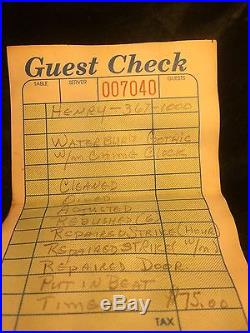 Guest Check
TABLE SERVER GUESTS
007040
HENRY - 367-1000
WATERBURY GOTHIC
W/M CHIME CLOCK
CLEANED
OILED
ADJUSTED
REBUSHED (6)
REPAIRED STRIKE (HOUR)
REPAIRED STRIKE (W/M)
REPAIRED DOOR
PUT IN BEAT
TIMED $175.00
TAX